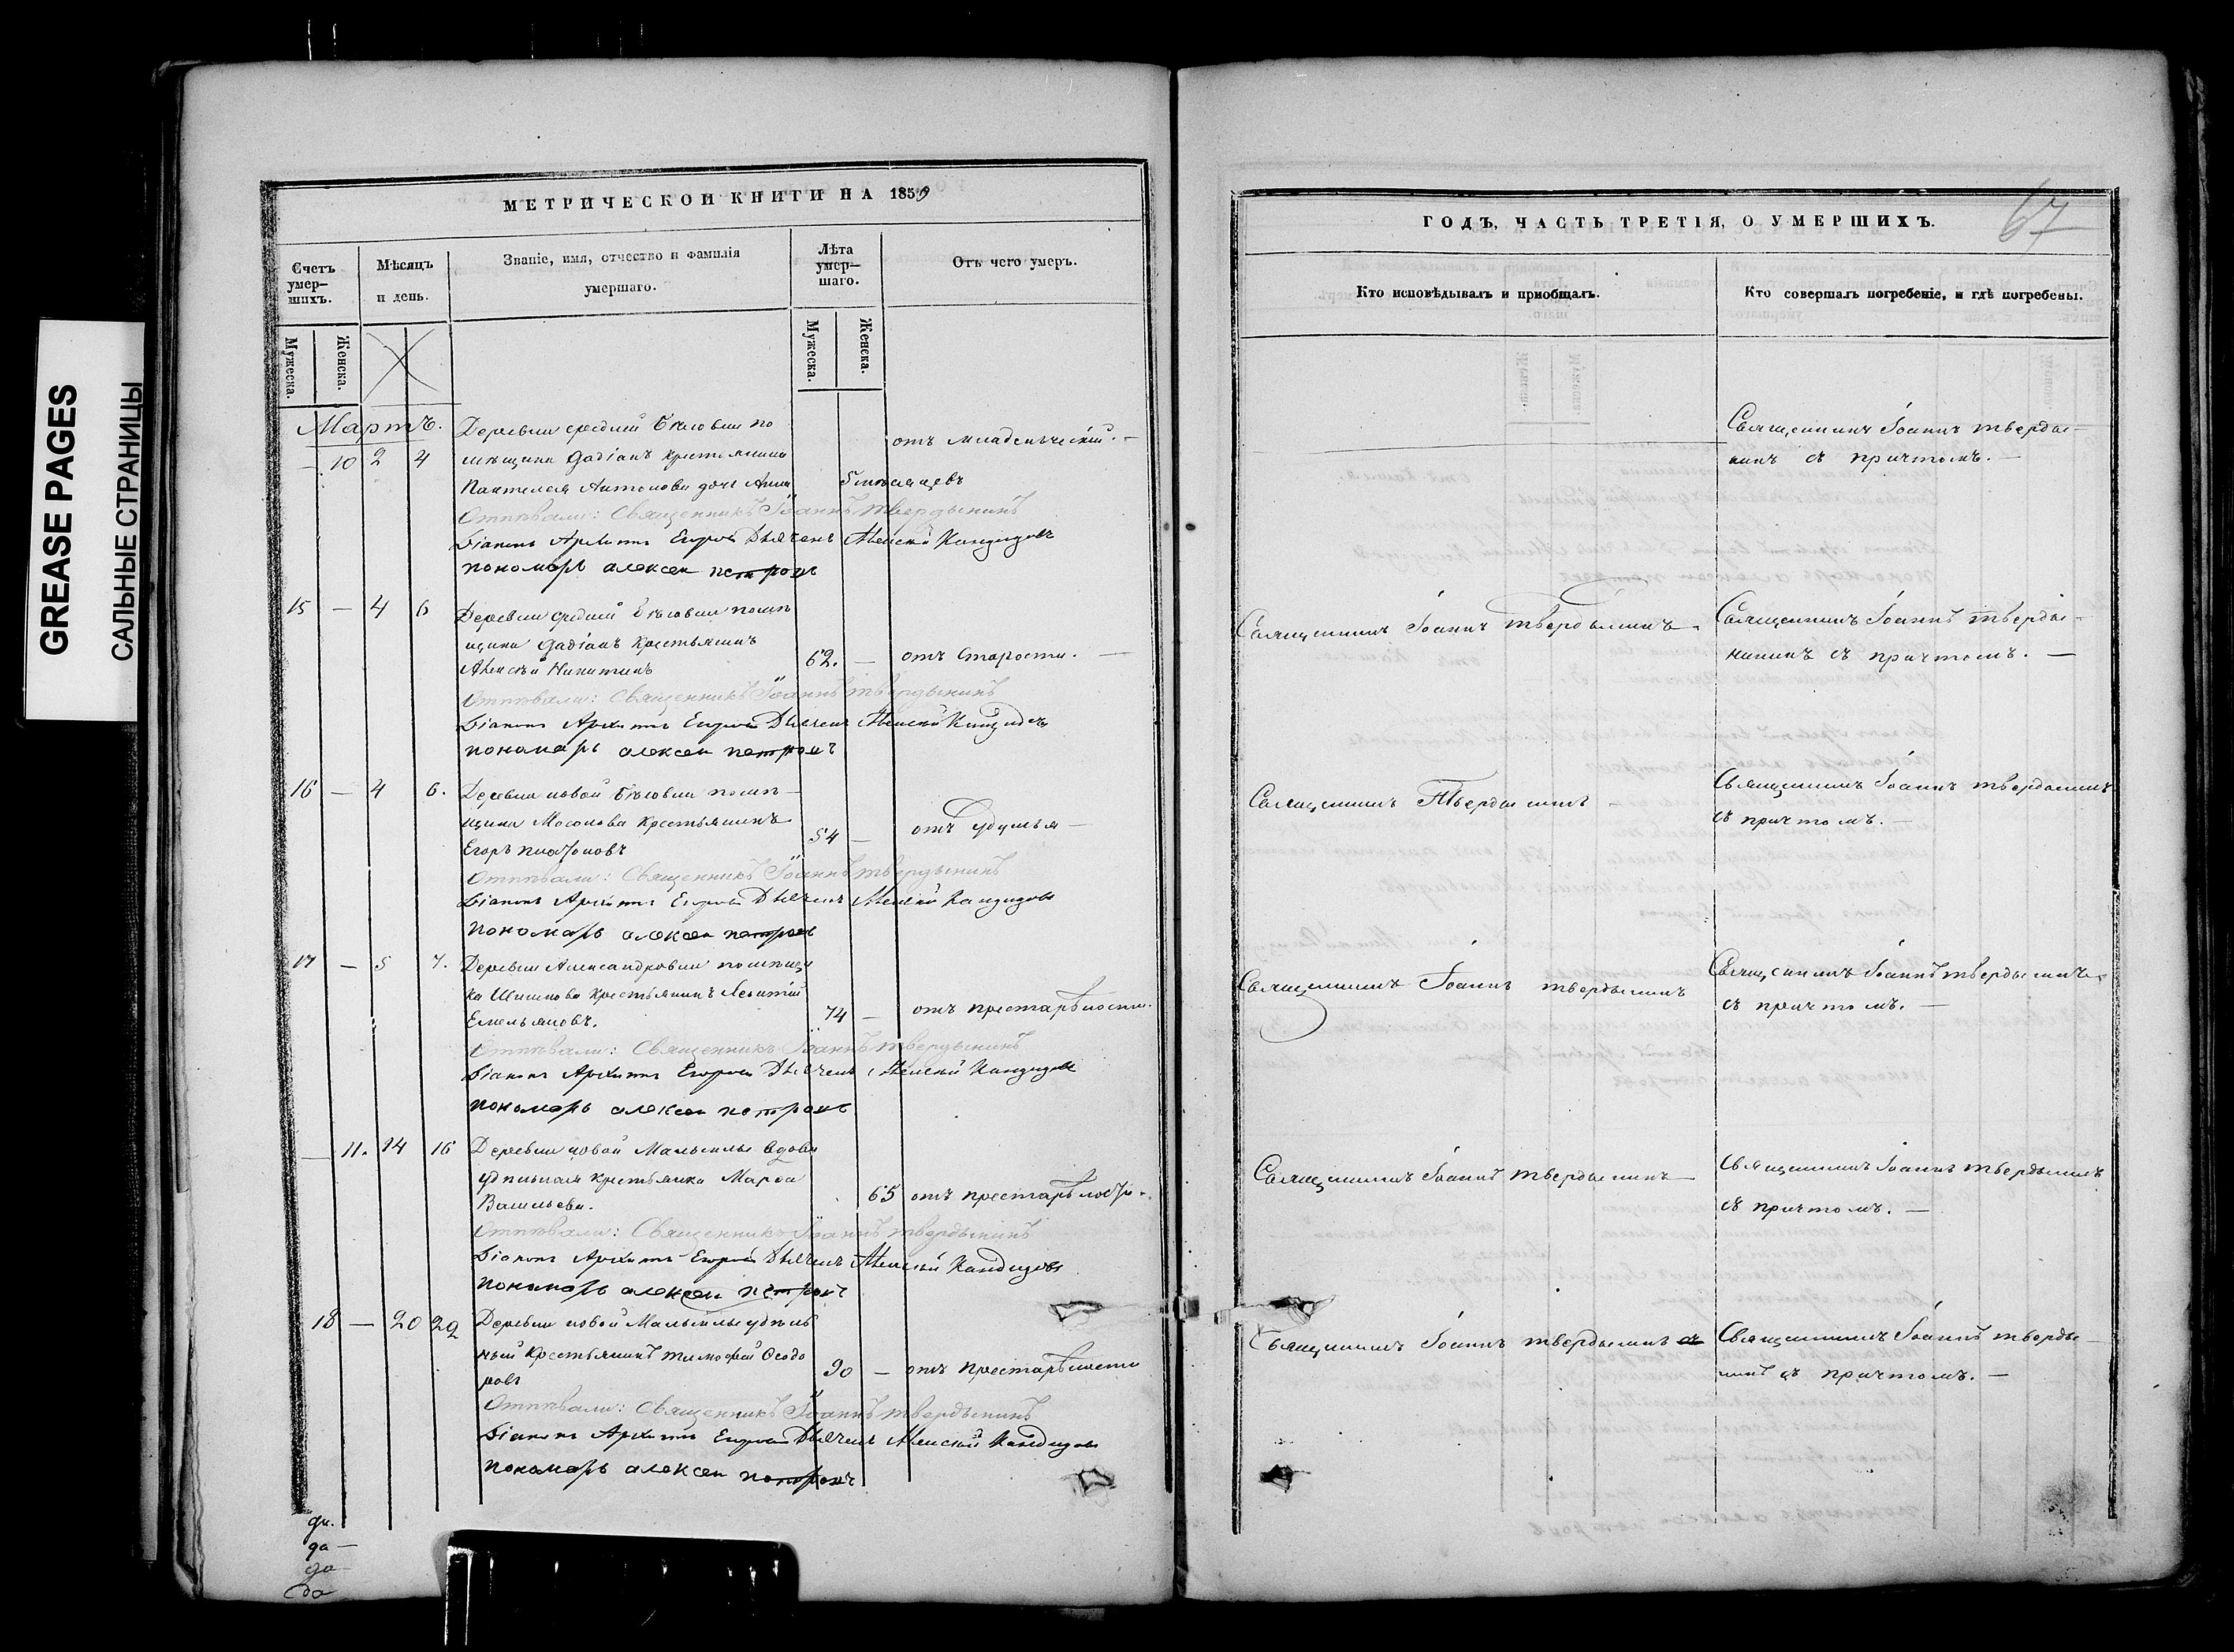 GREASE PAGES
САЛЬНЫЕ СТРАНИЦЫ
МЕТРИЧЕСКОЙ КНИГИ НА 1859
Счетъ умер-шихъ.
Мѣсяцъ и день.
Званіе, имя, отчество и фамилія умершаго.
Лѣта умер-шаго.
Отъ чего умеръ.
Мужеска.
Женска.
Мужеска.
Женска.
Мартъ.
Деревни средней Бѣловки по
— 10 2 4 мѣщика Gадіанъ крестьянина отъ младенческій. —
Пантелея Антонова дочь Анна 5 мѣсяцевъ
Отпѣвали: Священникъ Іоаннъ твердынинъ
Діаконъ Архипъ Егоровъ Дьячекъ Алексѣй Кандидовъ
пономарь алексеи петровъ
15 — 4 6 Деревни средней Бѣловки помѣ
щика Gадіанъ крестьянинъ
Алексѣй Никитинъ 62. — отъ старости. —
Отпѣвали: Священникъ Іоаннъ твердынинъ
Діаконъ Архипъ Егоровъ Дьячекъ Алексѣй Кандидовъ
пономарь алексеи петровъ
16 — 4 6. Деревни новой Бѣловки помѣ—
щика Мосолова крестьянинъ
Егоръ платоновъ 54 — отъ удушья —
Отпѣвали: Священникъ Іоаннъ твердынинъ
Діаконъ Архипъ Егоровъ Дьячекъ Алексѣй Кандидовъ
пономарь алексеи петровъ
17 — 5 7. Деревни Александровки помѣщи
ка Шишкова крестьянинъ Леонтій
Емельяновъ. 74 — отъ престарѣлости.
Отпѣвали: Священникъ Іоаннъ твердынинъ
Діаконъ Архипъ Егоровъ Дьячекъ Алексѣй Кандидовъ
пономарь алексеи петровъ
— 11. 14 16 Деревни новой вдова
удѣльная крестьянка Марѳа
Васильева. 65 отъ престарѣлости.
Отпѣвали: Священникъ Іоаннъ твердынинъ
Діаконъ Архипъ Егоровъ Дьячекъ Алексѣй Кандидовъ
пономарь алексеи петровъ
18 — 20 22 Деревни новой удѣль
ный крестьянинъ тимофей Ѳеодо
ровъ 90 — отъ престарѣлости
Отпѣвали: Священникъ Іоаннъ твердынинъ
Діаконъ Архипъ Егоровъ Дьячекъ Алексѣй Кандидовъ
пономарь алексеи петровъ
да —
до
67
ГОДЪ, ЧАСТЬ ТРЕТІЯ, О УМЕРШИХЪ.
Кто исповѣдывалъ и приобщалъ.
Кто совершалъ погребеніе, и гдѣ погребены.
Священникъ Іоаннъ тверды—
нинъ съ причтомъ. —
Священникъ Іоаннъ твердынинъ
Священникъ Іоаннъ тверды—
нинъ съ причтомъ. —
Священникъ Твердынинъ
Священникъ Іоаннъ твердынинъ
съ причтомъ. —
Священникъ Іоаннъ твердынинъ
Священникъ Іоаннъ твердынинъ
съ причтомъ. —
Священникъ Іоаннъ твердынинъ
Священникъ Іоаннъ твердынинъ
съ причтомъ. —
Священникъ Іоаннъ твердынинъ
Священникъ Іоаннъ тверды—
нинъ съ причтомъ. —